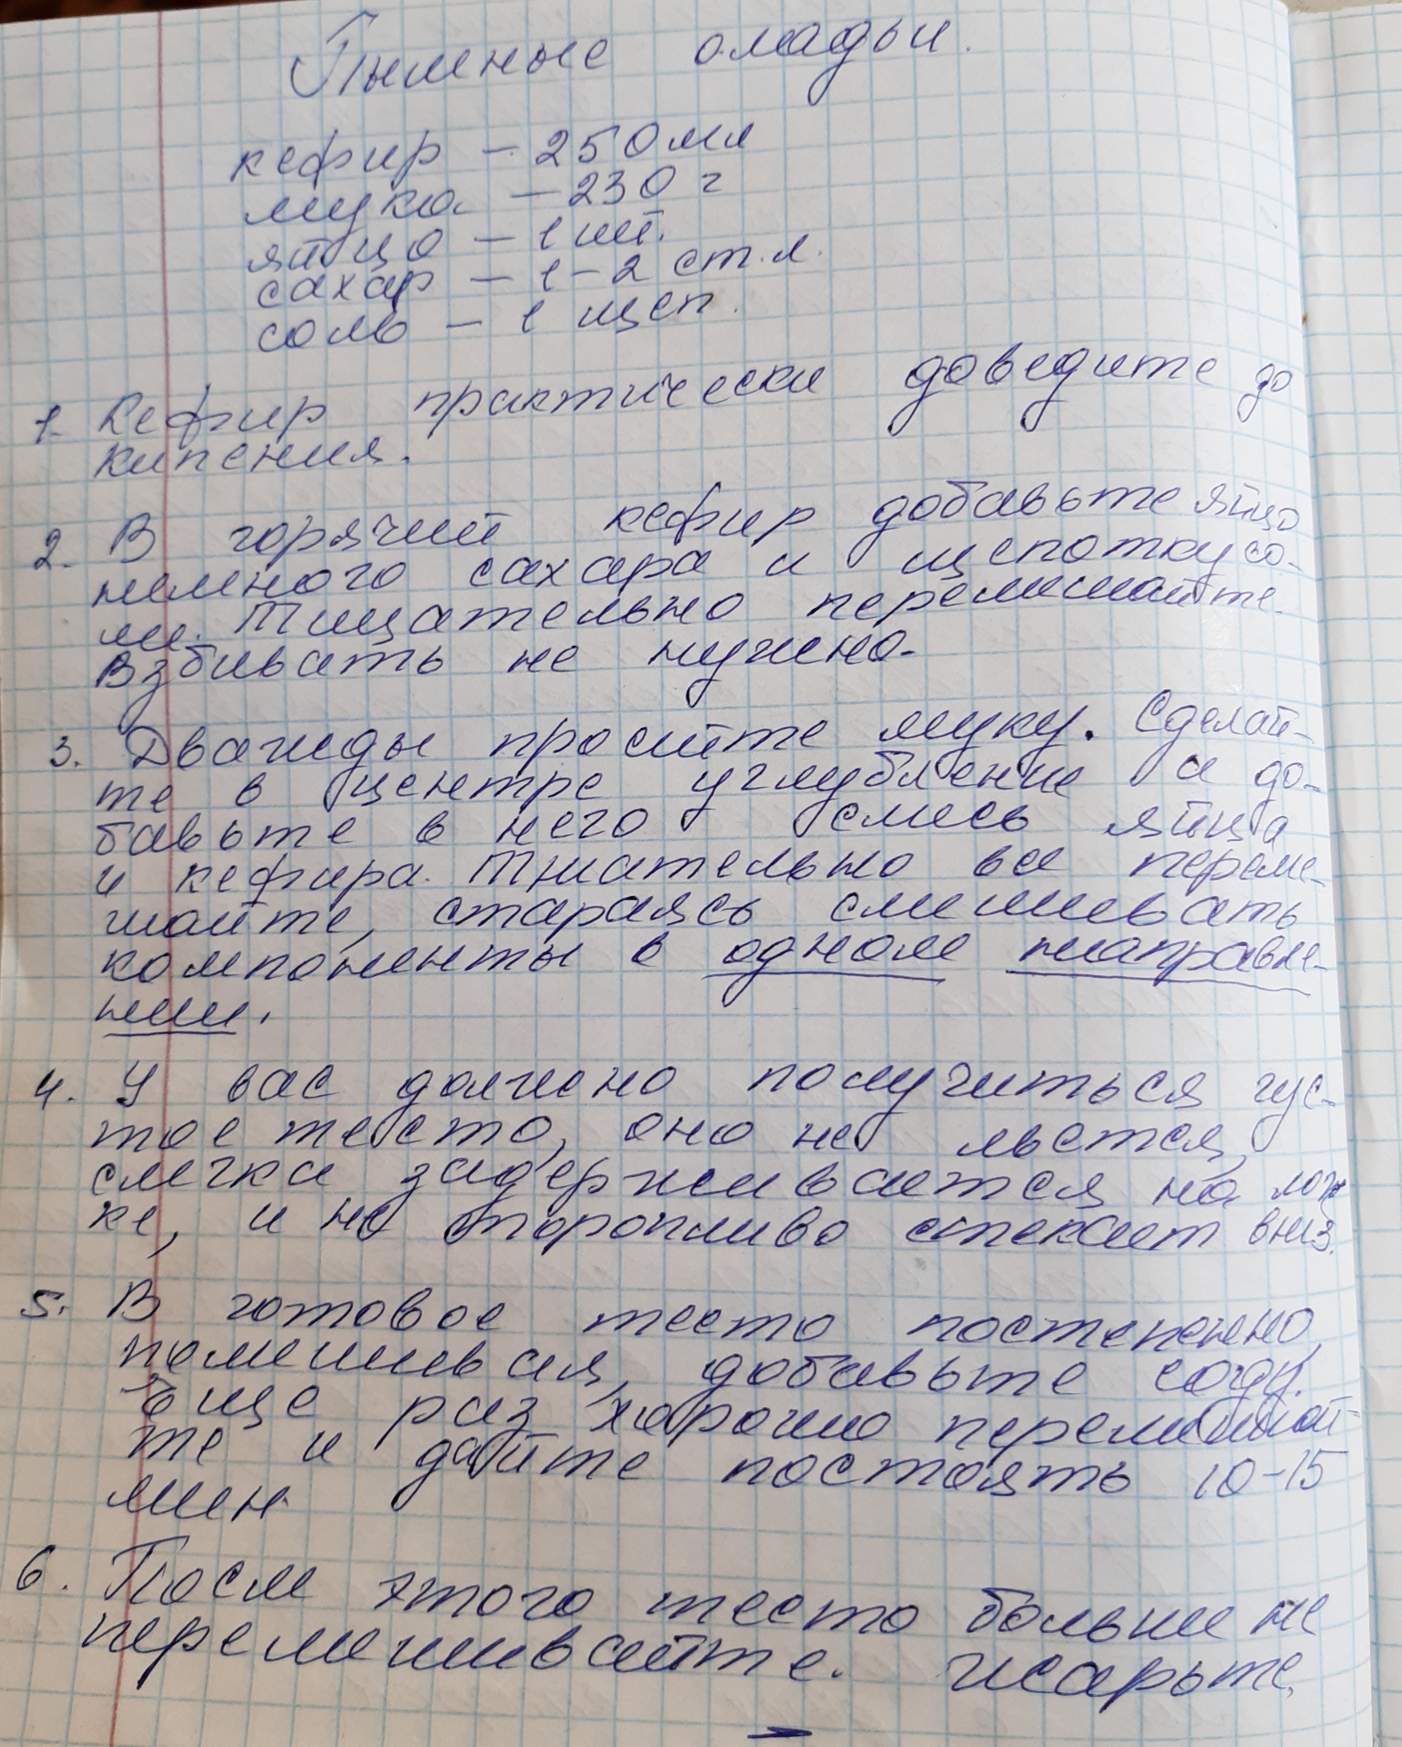 Пышные оладьи.
кефир - 250 мл
мука - 230 г
яйцо - 1 шт.
сахар - 1-2 ст. л.
соль - 1 щеп.
1. Кефир практически доведите до
кипения.
2. В горячий кефир добавьте яйцо
немного сахара и щепотку со-
ли. Тщательно перемешайте.
Взбивать не нужно.
3. Дважды просейте муку. Сделай-
те в центре углубление и до-
бавьте в него смесь яйца
и кефира. Тщательно все переме-
шайте, стараясь смешивать
компоненты в одном направле-
нии.
4. У вас должно получиться гус-
тое тесто, оно не льется,
слегка задерживается на лож-
ке, и не торопливо стекает вниз.
5. В готовое тесто постепенно,
помешивая, добавьте соду.
Еще раз хорошо перемешай-
те и дайте постоять 10-15
мин.
6. После этого тесто больше не
перемешивайте. Жарьте